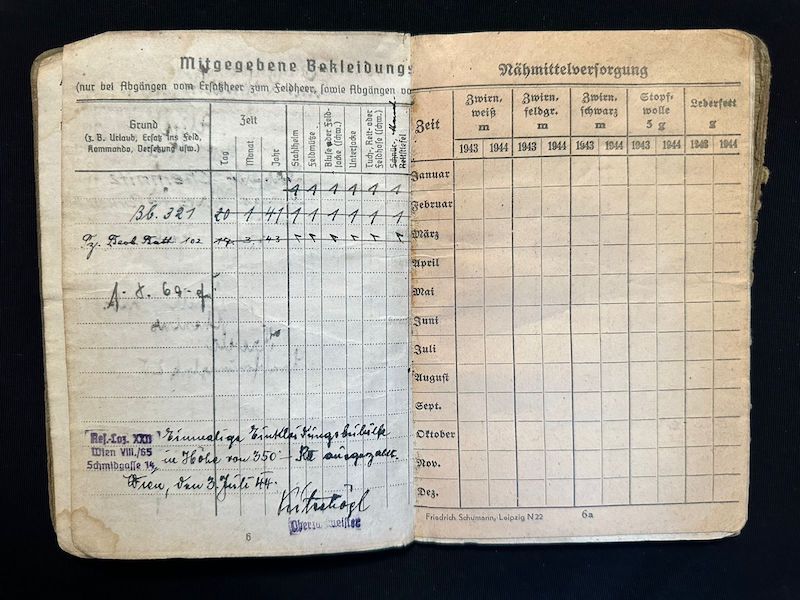 Mitgegebene Bekleidungs
(nur bei Abgängen vom Ersatzheer zum Feldheer, sowie Abgängen vo
Grund
(z. B. Urlaub, Ersatz ins Feld,
Kommando, Versetzung usw.)
Zeit
Tag
Monat
Jahr
Stahlhelm
Feldmütze
Bluse oder Feld-
jacke (schw.)
Unterjacke
Tuch-, Reit- oder
Feldhose (schw.)
Schnür-
1 1 1 1 1 1
Bb. 321 20 1 41 1 1 1 1 1 1
102 17. 3. 43
Res.-Laz. XXII
Wien VIII./65
Schmidgasse 14
Einmalige Einkleidungsbeihilfe
in Höhe von 350.- RM ausgezahlt.
Wien, den 3. Juli 44.
6
Nähmittelversorgung
Zeit
Zwirn,
weiß
m
Zwirn,
feldgr.
m
Zwirn,
schwarz
m
Stopf-
wolle
5 g
Lederfett
g
1943 1944 1943 1944 1943 1944 1943 1944 1943 1944
Januar
Februar
März
April
Mai
Juni
Juli
August
Sept.
Oktober
Nov.
Dez.
Friedrich Schumann, Leipzig N 22
6a